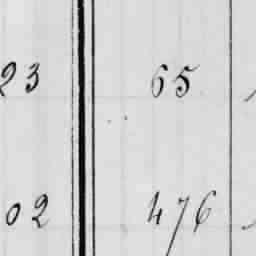 23 65
02 476